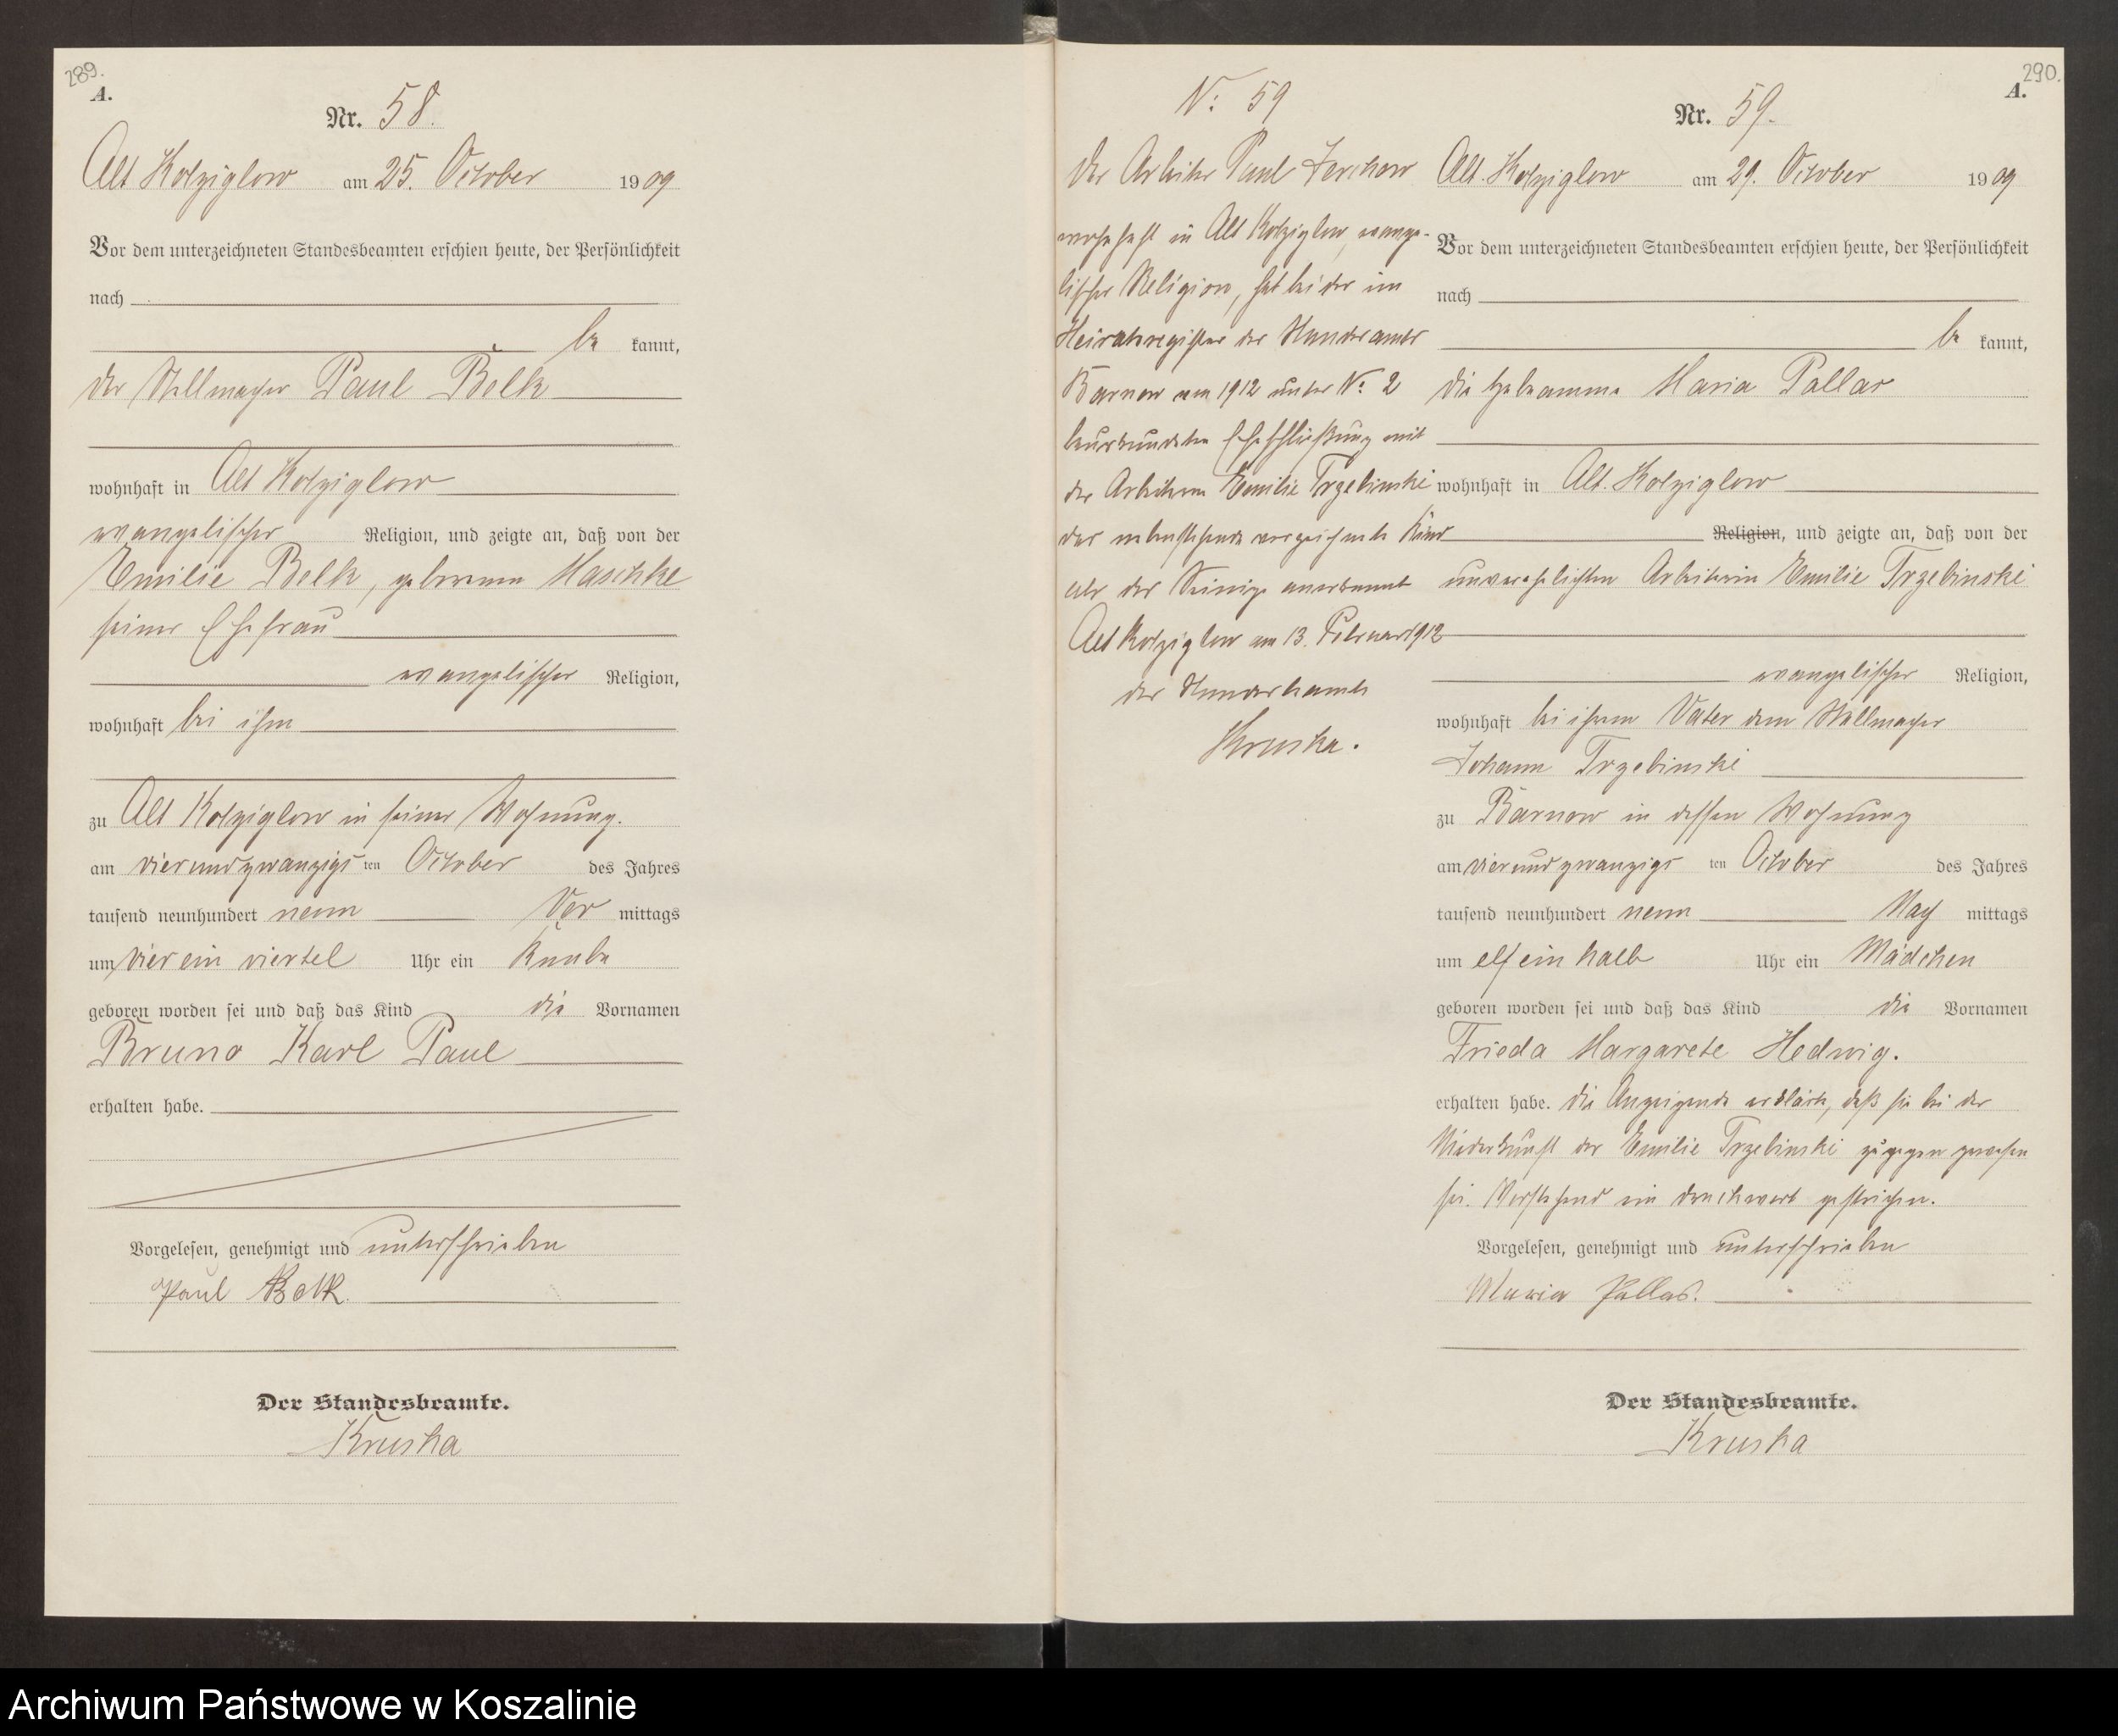 289.
A.
Nr. 58.
Alt Kolziglow am 25. October 1909
Vor dem unterzeichneten Standesbeamten erschien heute, der Persönlichkeit
nach
be kannt,
der Stellmacher Paul Belk
wohnhaft in Alt Kolziglow
evangelischer Religion, und zeigte an, daß von der
Emilie Belk, geborenen Maschke
seiner Ehefrau
evangelischer Religion,
wohnhaft bei ihm
zu Alt Kolziglow in seiner Wohnung.
am vierundzwanzigsten October des Jahres
tausend neunhundert neun Vor mittags
um vier ein viertel Uhr ein Knabe
geboren worden sei und daß das Kind die Vornamen
Bruno Karl Paul
erhalten habe.
Vorgelesen, genehmigt und unterschrieben
Paul Belk.
Der Standesbeamte.
Kruska
N: 59
Der Arbeiter Paul Jerchow
wohnhaft in Alt Kolziglow, evange-
lischer Religion, hat bei der im
Heiratsregister des Standesamts
Barnow am 1912 unter N: 2
beurkundeten Eheschließung mit
der Arbeiterin Emilie Trzebinski
das nebenstehende verzeichnete Kind
als das Seinige anerkannt
Alt Kolziglow am 13. Februar 1912
der Standesbeamte
Kruska.
290.
A.
Nr. 59.
Alt. Kolziglow am 29. October 1909
Vor dem unterzeichneten Standesbeamten erschien heute, der Persönlichkeit
nach
be kannt,
die Hebeamme Maria Pallas
wohnhaft in Alt. Kolziglow
Religion, und zeigte an, daß von der
unverehelichten Arbeiterin Emilie Trzebinski
evangelischer Religion,
wohnhaft bei ihrem Vater dem Stellmacher
Johann Trzebinski
zu Barnow in dessen Wohnung
am vierundzwanzigsten October des Jahres
tausend neunhundert neun Nach mittags
um elf ein halb Uhr ein Mädchen
geboren worden sei und daß das Kind die Vornamen
Frieda Margarete Hedwig.
erhalten habe. Die Anzeigende erklärte, daß sie bei der
Niederkunft der Emilie Trzebinski zugegen gewesen
sei. Vorstehend ein Druckwort gestrichen.
Vorgelesen, genehmigt und unterschrieben
Maria Pallas.
Der Standesbeamte.
Kruska
Archiwum Państwowe w Koszalinie